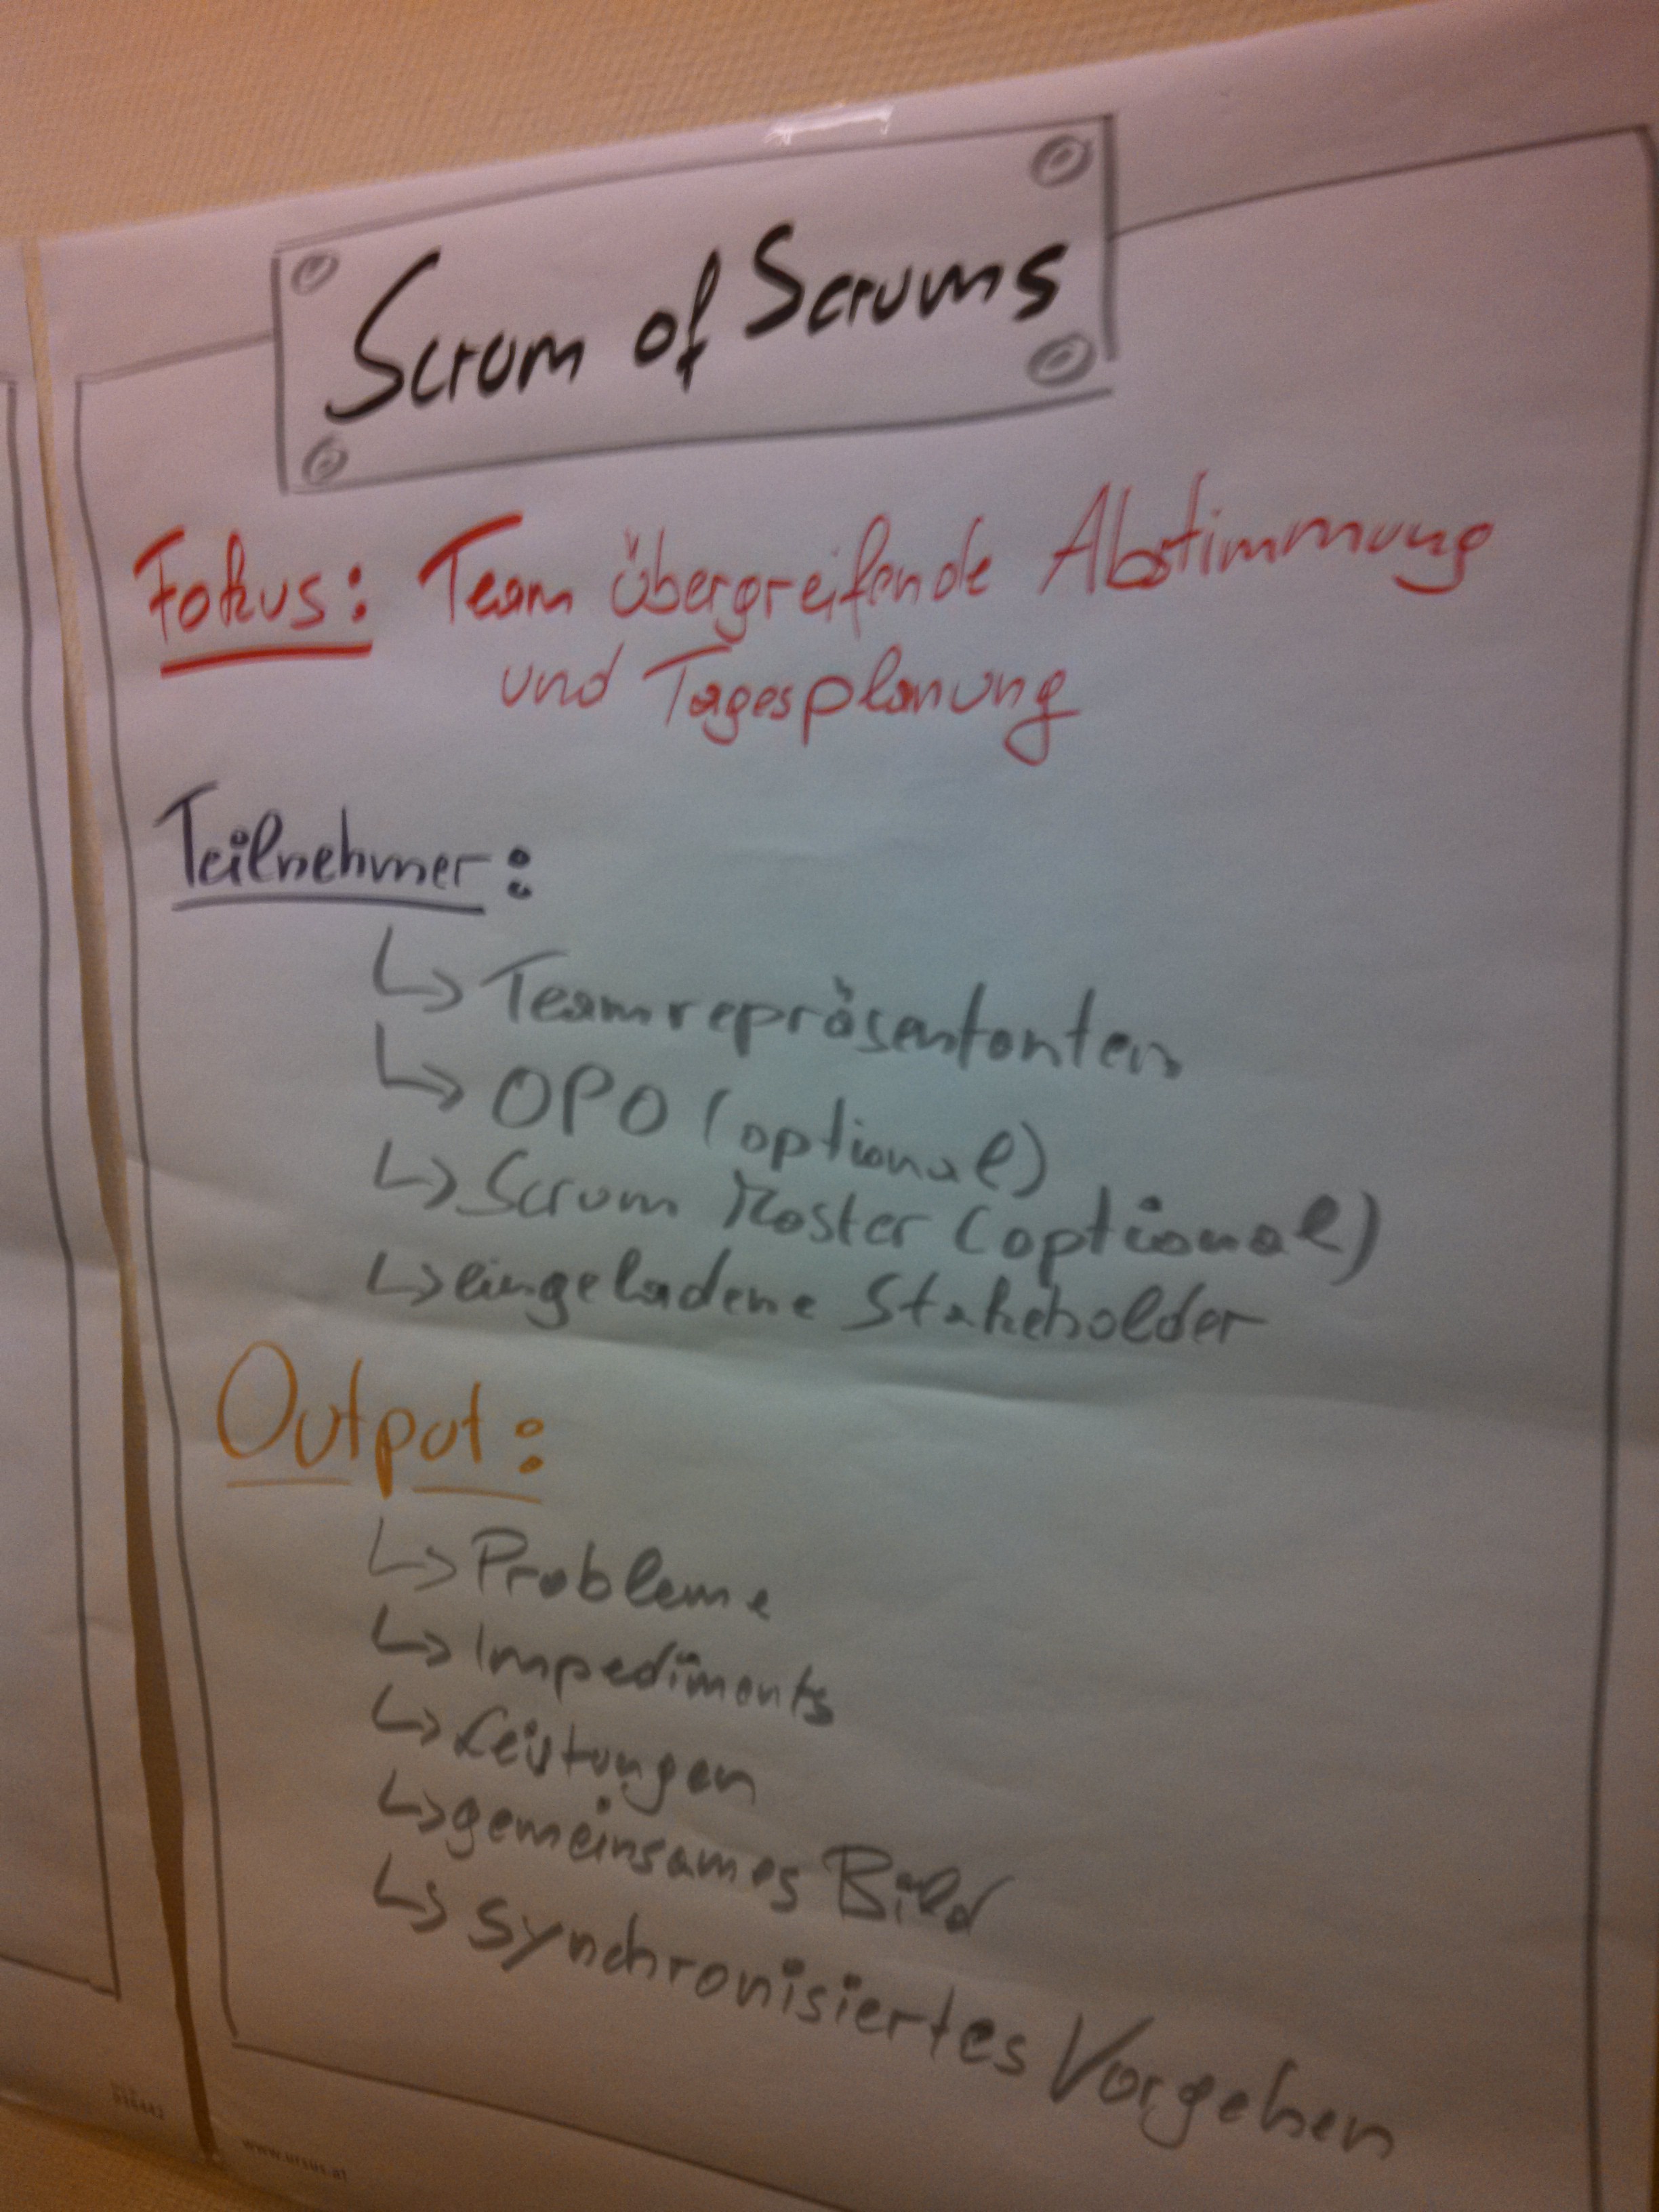 Scrum of Scrums
Fokus: Team übergreifende Abstimmung
und Tagesplanung
Teilnehmer:
↳ Teamrepräsentanten
↳ OPO (optional)
↳ Scrum Master (optional)
↳ eingeladene Stakeholder
Output:
↳ Probleme
↳ Impediments
↳ Leistungen
↳ gemeinsames Bild
↳ synchronisiertes Vorgehen
www.ursus.at